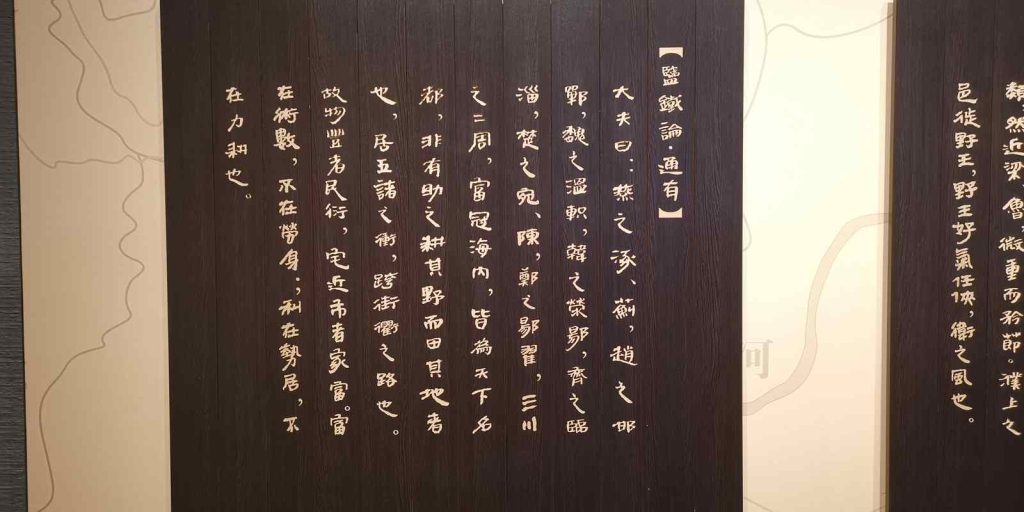 類然近梁、魯,微重而矜節。濮上之
邑徙野王,野王好氣任俠,衛之風也。
【鹽鐵論·通有】
大夫曰:燕之涿、薊,趙之邯
鄲,魏之溫軹,韓之滎陽,齊之臨
淄,楚之宛、陳,鄭之陽翟,三川
之二周,富冠海內,皆為天下名
都,非有助之耕其野而田其地者
也,居五諸之衝,跨街衢之路也。
故物豐者民衍,宅近市者家富。富
在術數,不在勞身;利在勢居,不
在力耕也。
河